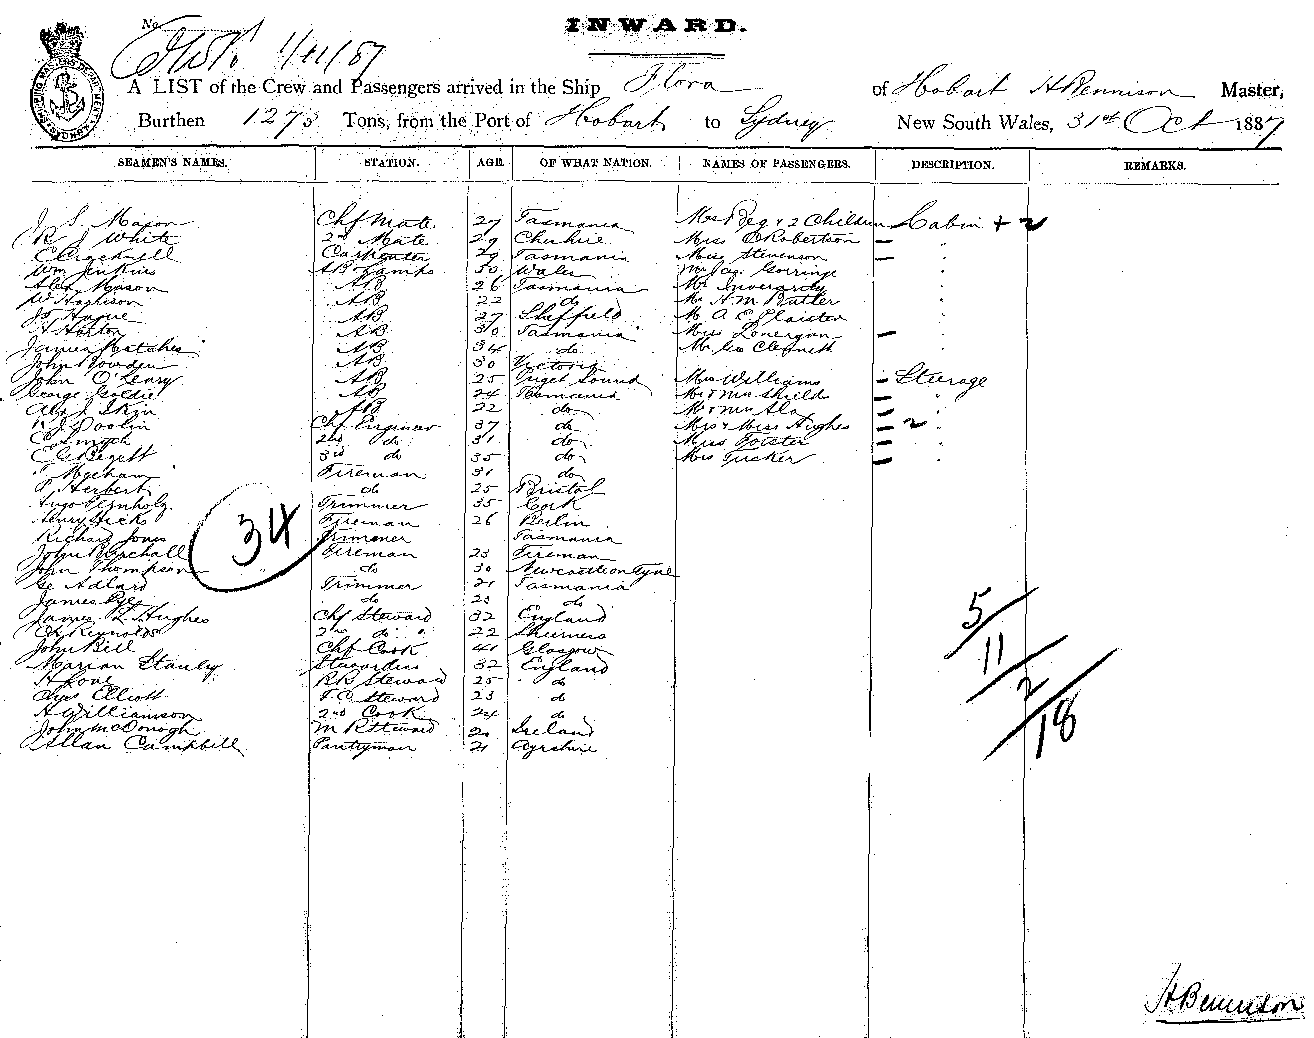 INWARD.
No.
1/11/87
A LIST of the Crew and Passengers arrived in the Ship Flora of Hobart H Bennison Master,
Burthen 1273 Tons, from the Port of Hobart to Sydney New South Wales, 31st Oct 1887
SEAMEN'S NAMES. STATION. AGE. OF WHAT NATION. NAMES OF PASSENGERS. DESCRIPTION. REMARKS.
J S Mason Chf Mate 27 Tasmania Mrs & 2 Children Cabin + 2
R J White 2nd Mate 29 Cheshire Miss Robertson
Carpenter 29 Tasmania Miss Stevenson
Wm Jenkins AB Lamps 30 Wales Mr Jas. Gorringe
Alex Mason AB 26 Tasmania Mr Inverarity
W Harrison AB 22 do Mr H M Butler
AB 27 Sheffield Mr A E Plaister
H Harton AB 30 Tasmania Miss Lonergan
James AB 34 do Mr Geo
John Bowden AB 30 Victoria
John O'Leary AB 25 Puget Sound Mrs Williams Sturage
George Goldie AB 24 Tasmania Mr & Mrs Shield
AB 22 do Mr & Mrs
Chf Engineer 37 do Mrs & Miss Hughes 2
C Smyth 2nd do 31 do Miss Forster
3rd do 35 do Mrs Tucker
Fireman 31 do
P Herbert do 25 Bristol
Trimmer 35 Cork
Henry Hicks Fireman 26 Berlin
34
Richard Jones Trimmer Tasmania
John Fireman 23 Fireman
John Thompson do 30 Newcastle on Tyne
Ge Adlard Trimmer 21 Tasmania
James Pye do 23 do
James L Hughes Chf Steward 32 England
Ch Reynolds 2nd do 22 Sheerness
John Bell Chf Cook 41 Glasgow
Marian Stanly Stuardess 32 England
H Love RR Steward 25 do
Elliott F.C Steward 23 do
H Williamson 2nd Cook 24 do
John McDonogh M R Steward 21 Ireland
Allan Campbell Pantryman 21 Ayrshire
5
11
2
18
H Bennison